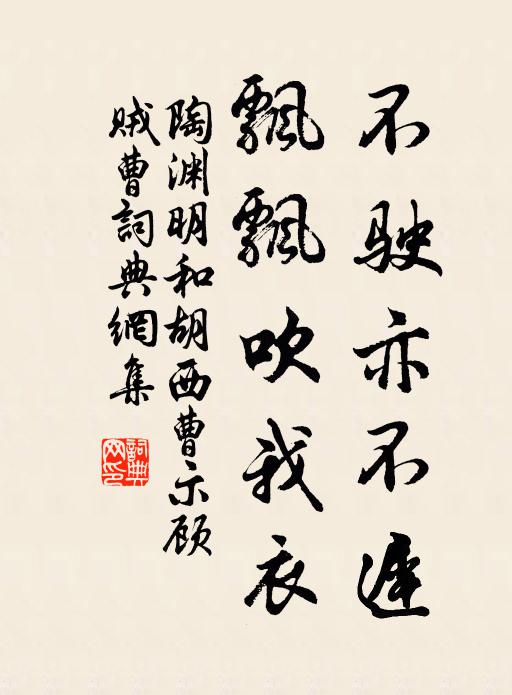 不駛亦不遲
飄飄吹我衣
陶渊明和胡西曹示顾
贼曹詞典網集
詞典网印